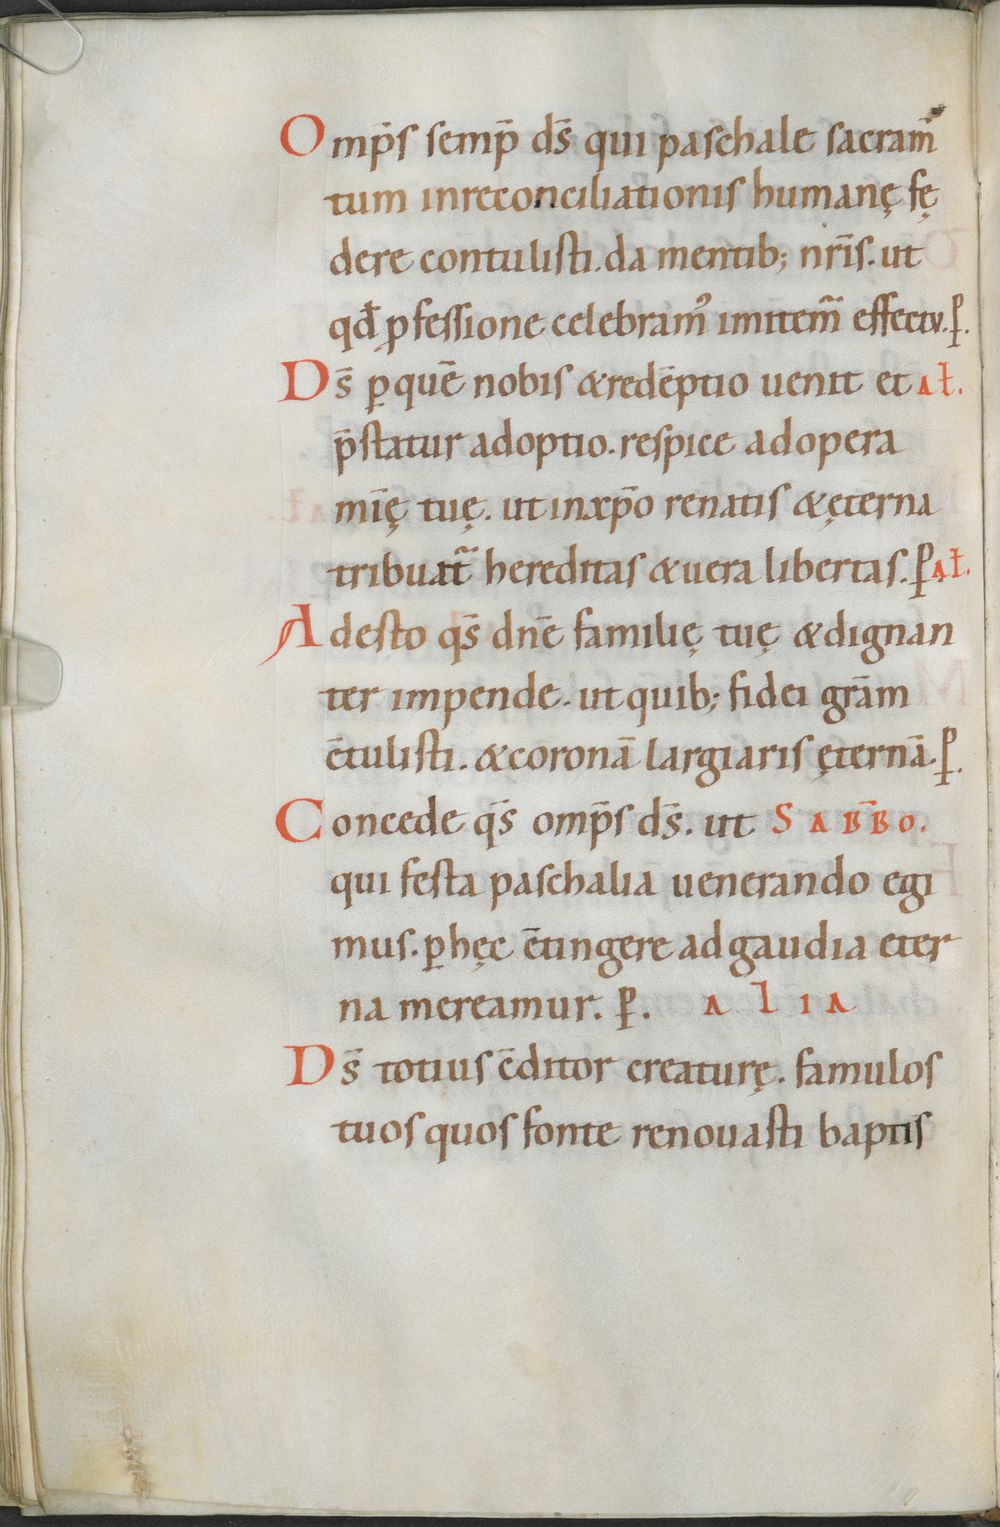 Omp̄s semp̄ ds̄ qui paschale sacram̄
tum inreconciliationis humanę fę
dere contulisti. da mentib; nr̄is. ut
qđ ꝓfessione celebram᾽ imitem̄ effectu. ꝑ.
Ds̄ ꝑquē nobis &redēptio uenit et aƚ.
p̄statur adoptio. respice adopera
mīę tuę. ut inxp̄o renatis &ęterna
tribuat̄ hereditas &uera libertas. ꝑ aƚ.
Adesto qs̄ dnē familię tuę &dignan
ter impende. ut quib; fidei grām
c̄tulisti. &coronā largiaris ęternā. ꝑ.
Concede qs̄ omp̄s ds̄. ut SABB̄O.
qui festa paschalia uenerando egi
mus. ꝑhęc c̄tingere adgaudia eter
na mereamur. ꝑ. ALIA
Ds̄ totius c̄ditor creaturę. famulos
tuos quos fonte renouasti baptis